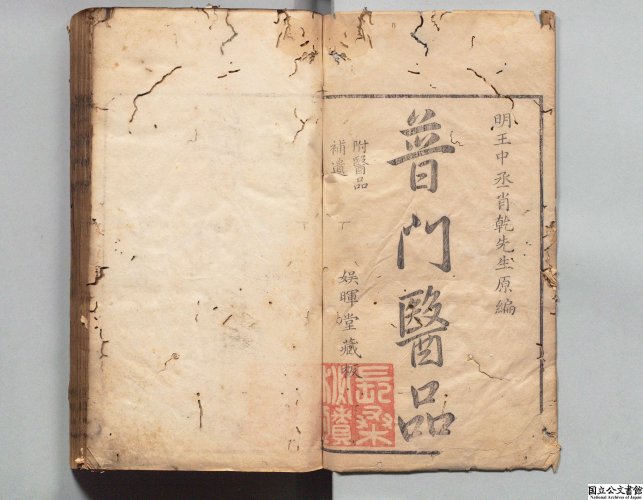 明王中丞肖乾先生原編
普門醫品
附醫品
補遺
娛暉堂藏板
国立公文書館
National Archives of Japan